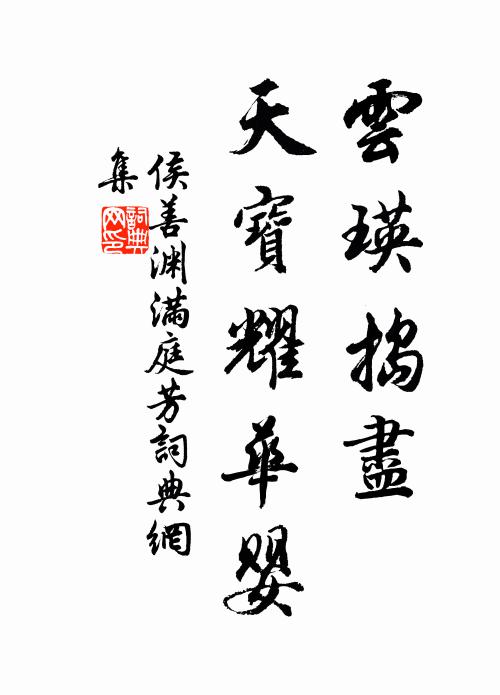 雲瑛搗盡
天寶耀華嬰
侯善淵滿庭芳詞典網
集
詞典
网印